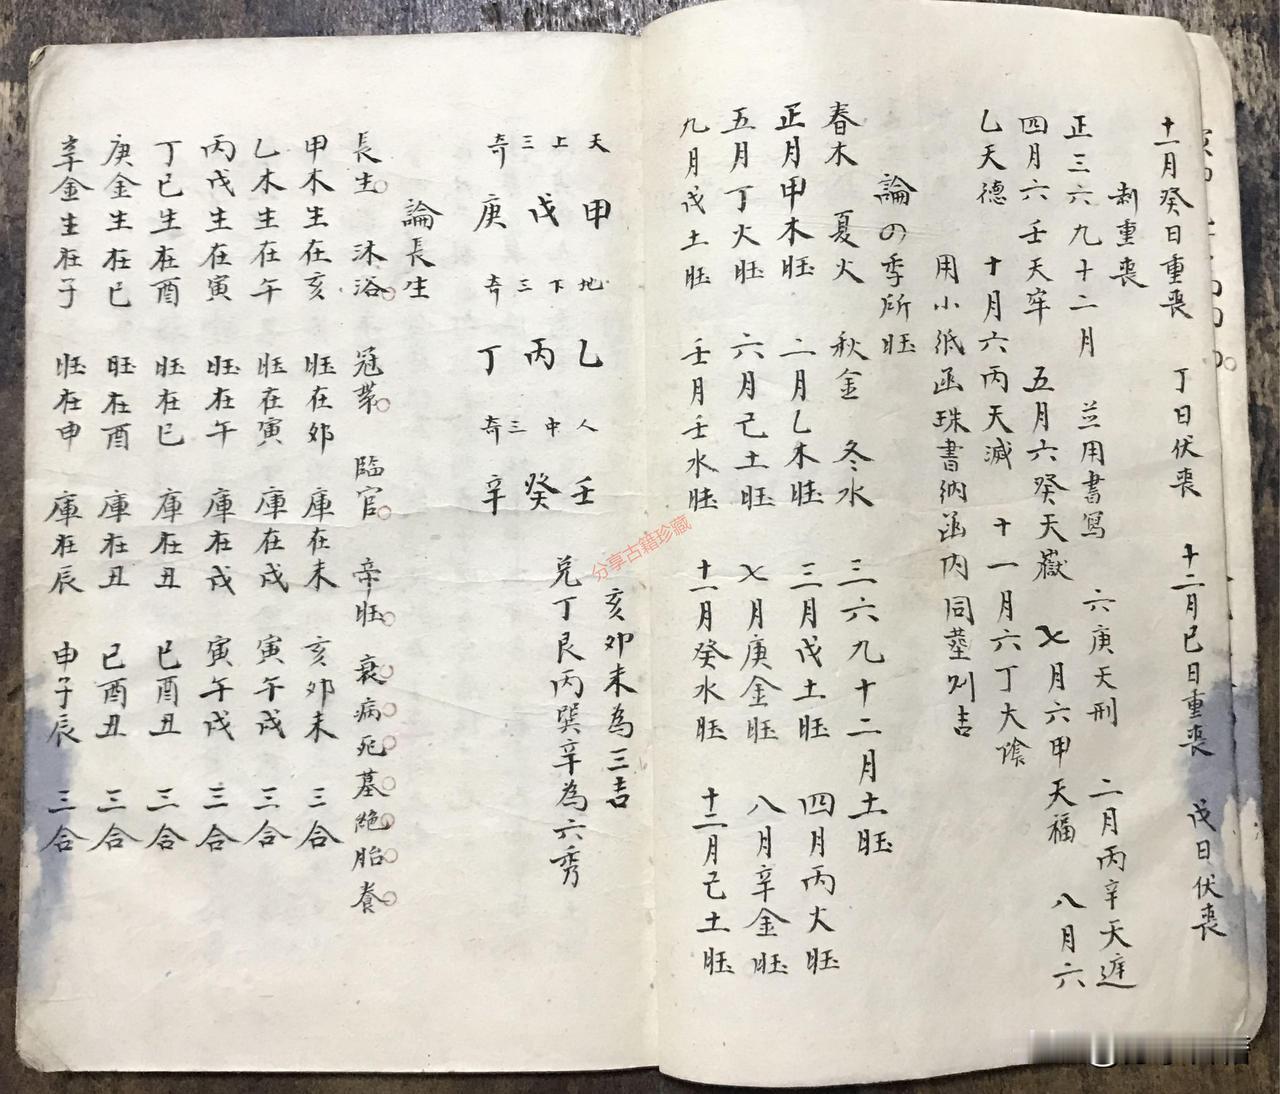 十一月癸日重喪 丁日伏喪 十二月己日重喪 戊日伏喪
制重喪
正三六九十二月 並用書寫 六庚天刑 二月丙辛天遅
四月六壬天牢 五月六癸天嶽 七月六甲天福 八月六
乙天德 十月六丙天滅 十一月六丁大陰
用小紙函珠書納函内同塟則吉
論の季所旺
春木 夏火 秋金 冬水 三六九十二月土旺
正月甲木旺 二月乙木旺 三月戊土旺 四月丙火旺
五月丁火旺 六月己土旺 七月庚金旺 八月辛金旺
九月戊土旺 壬月壬水旺 十一月癸水旺 十二月己土旺
亥卯未為三吉
天 甲 地 乙 人 壬 兌丁艮丙巽辛為六秀
上 戊 下 丙 中 癸
三 三 三
奇 庚 奇 丁 奇 辛
論長生
長生 沐浴 冠帶 臨官 帝旺 衰病死墓絶胎養
甲木生在亥 旺在卯 庫在未 亥卯未 三合
乙木生在午 旺在寅 庫在戌 寅午戌 三合
丙戊生在寅 旺在午 庫在戌 寅午戌 三合
丁己生在酉 旺在巳 庫在丑 巳酉丑 三合
庚金生在巳 旺在酉 庫在丑 巳酉丑 三合
辛金生在子 旺在申 庫在辰 申子辰 三合
分享古籍珍藏